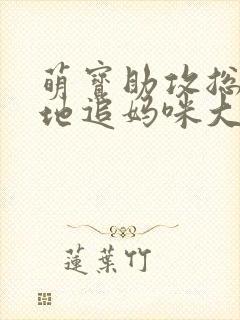 萌寶助攻総
地追媽咪大
蓮葉竹